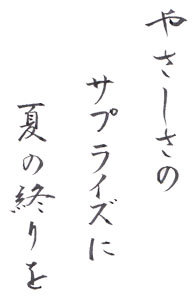 やさしさの
サプライズに
夏の終りを